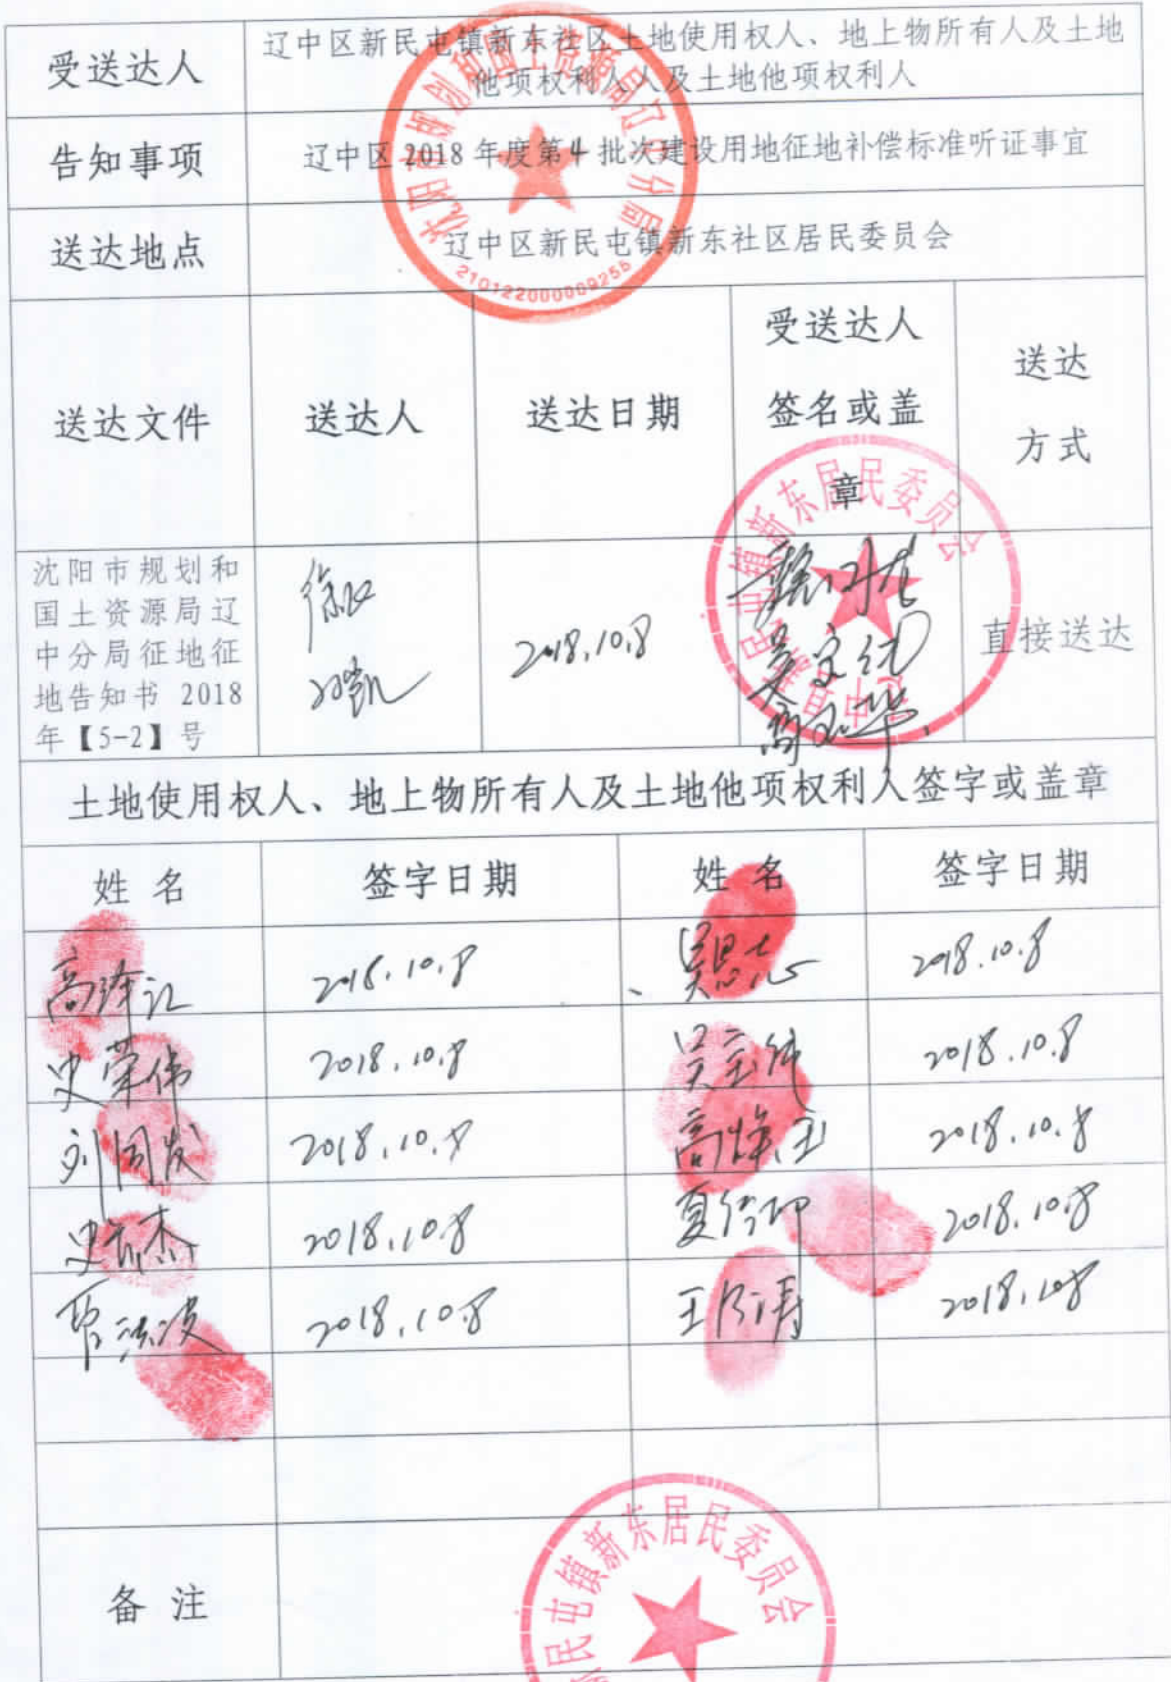 受送达人
辽中区新民屯镇新东社区土地使用权人、地上物所有人及土地
他项权利人人及土地他项权利人
告知事项
辽中区 2018 年度第4批次建设用地征地补偿标准听证事宜
送达地点
辽中区新民屯镇新东社区居民委员会
沈阳市规划和国土资源局辽中分局
2101220000009255
送达文件
送达人
送达日期
受送达人
签名或盖
章
送达
方式
沈阳市规划和
国土资源局辽
中分局征地征
地告知书 2018
年【5-2】号
2018.10.8
直接送达
土地使用权人、地上物所有人及土地他项权利人签字或盖章
姓 名
签字日期
姓 名
签字日期
2018.10.8
吴恩志
2018.10.8
史荣伟
2018.10.8
吴宝伟
2018.10.8
刘国发
2018.10.8
2018.10.8
2018.10.8
2018.10.8
2018.10.8
2018.10.8
备 注
民屯镇新东居民委员会